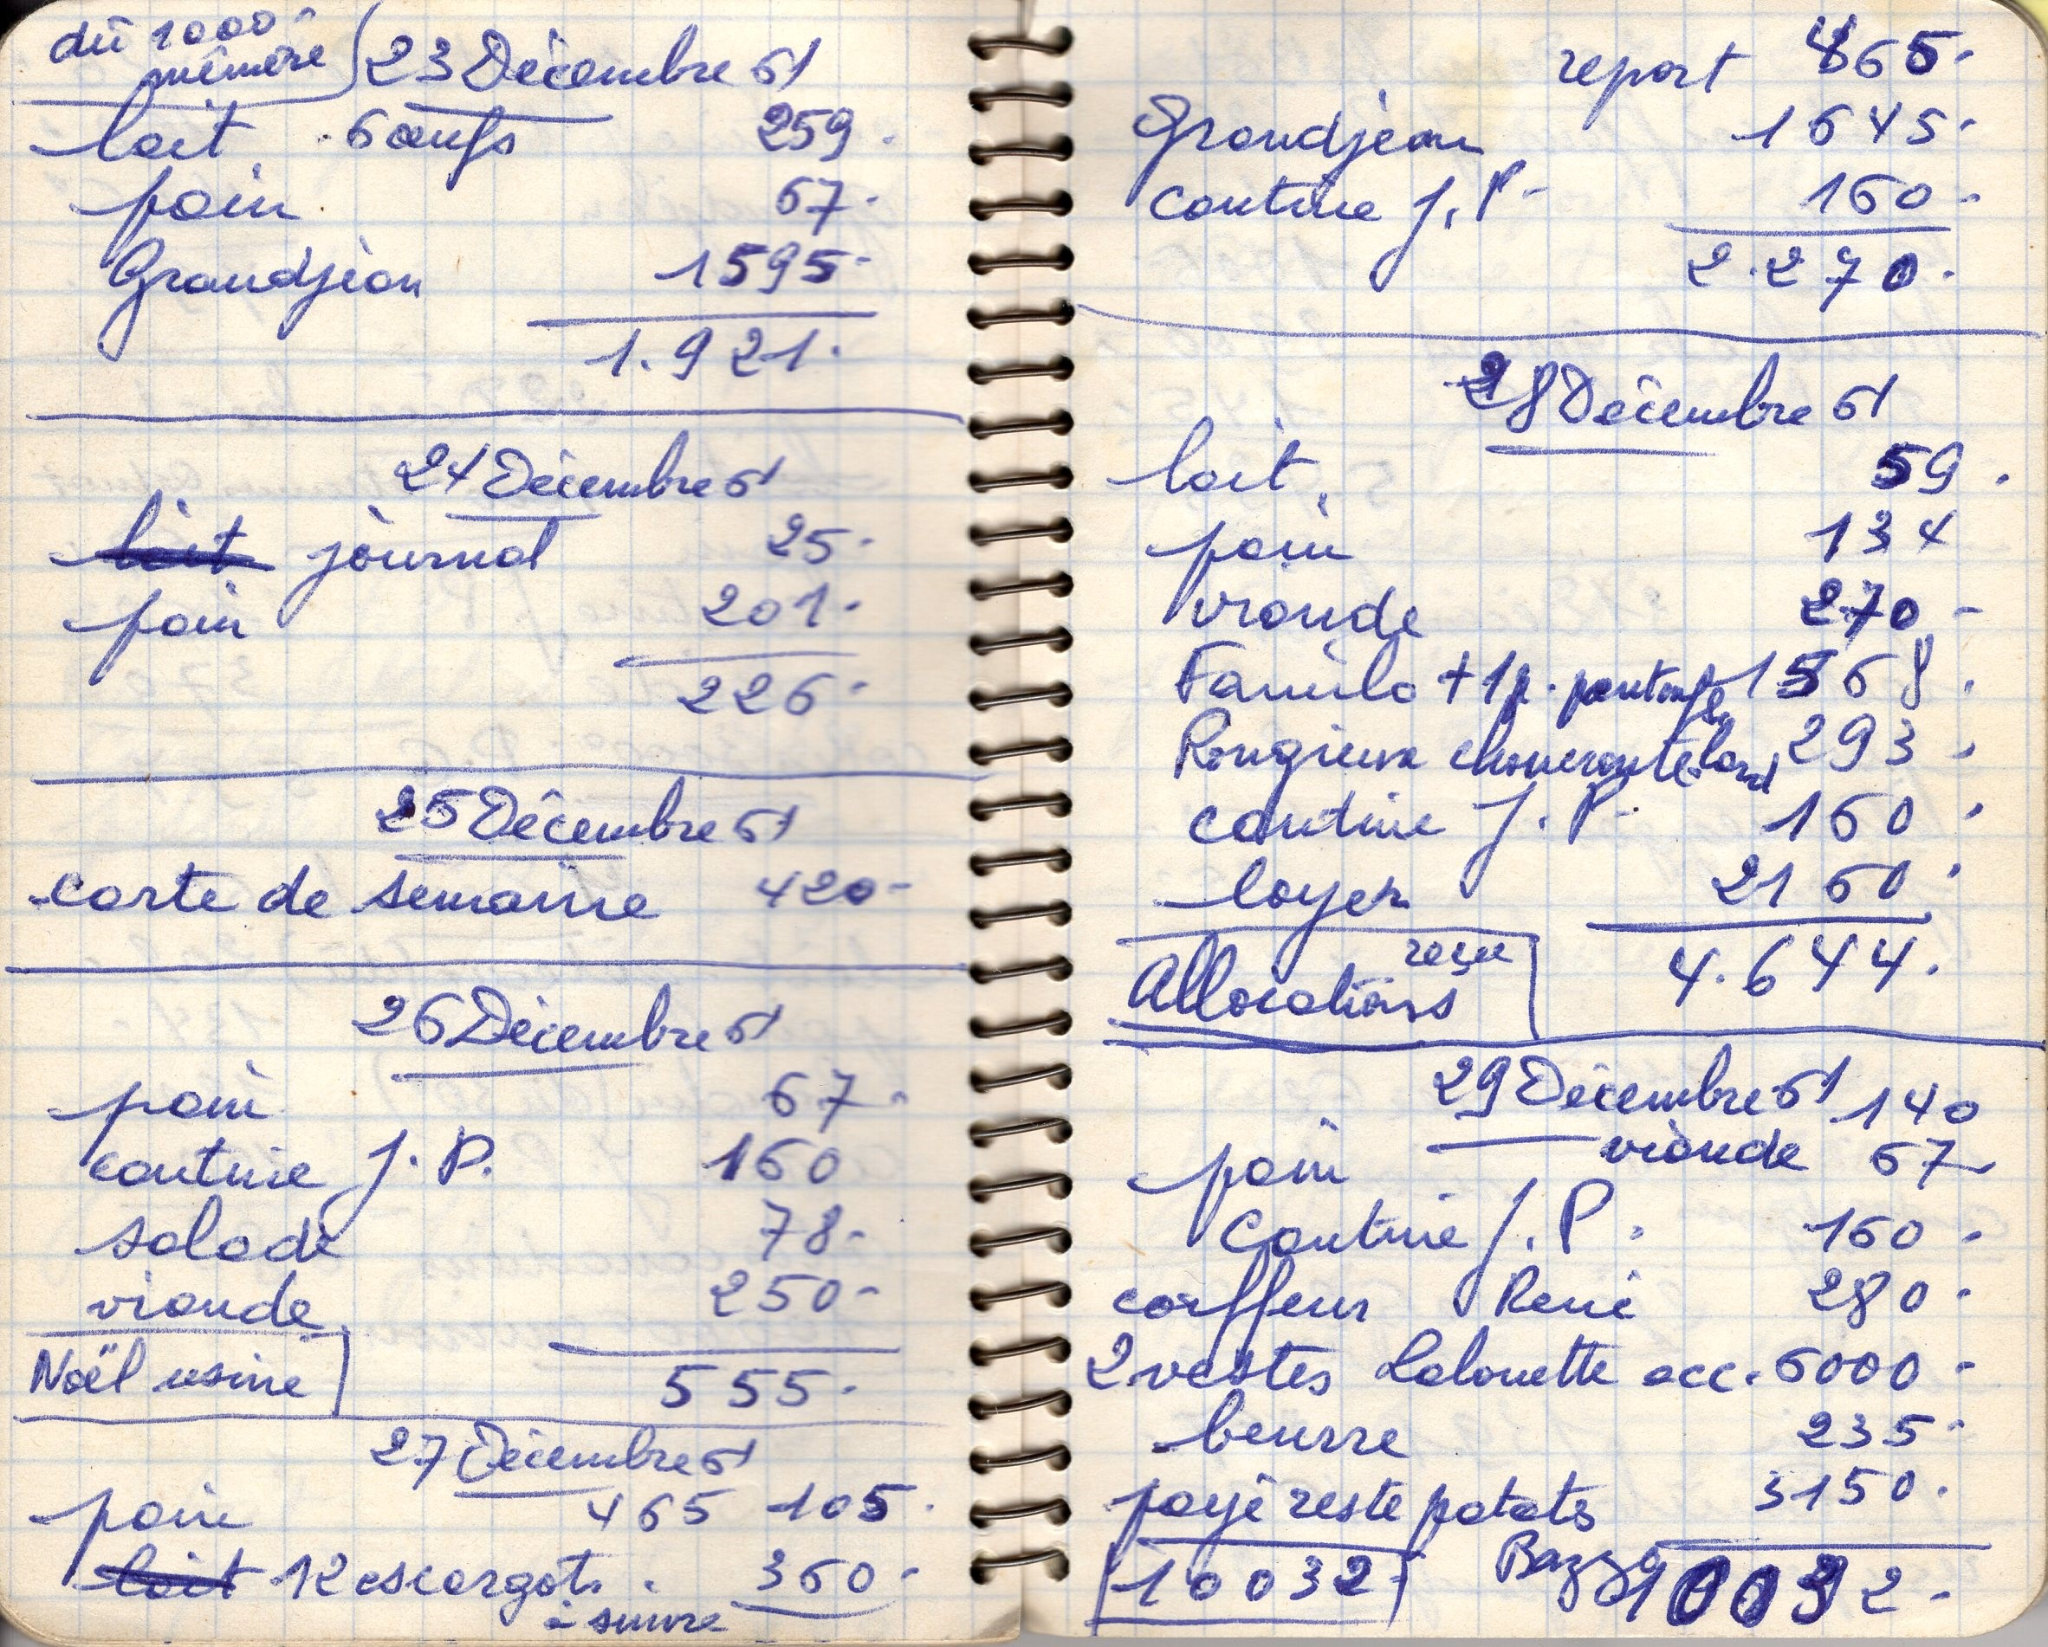 dû 1000
mémère
23 Décembre 61
lait. 6 œufs 259.
pain 67.
Grandjean 1595-
1.921.
24 Décembre 61
lait journal 25-
pain 201.
226-
25 Décembre 61
carte de semaine 420-
26 Décembre 61
pain 67.
cantine J. P. 160
salade 78-
viande 250-
Noël usine 555.
27 Décembre 61
pain 465 105.
lait 12 escargots. 360-
à suivre
report 465.
Grandjean 1645.
cantine J. P- 160-
2.270.
28 Décembre 61
lait. 59.
pain 134
viande 270-
Familo + 1 p. pantoufle 1568.
Rougieux choucroute lard 293.
cantine J. P. 160.
loyer 2160.
reçue
Allocations 4.644.
29 Décembre 61 140
viande 67
pain
Cantine J. P. 160.
coiffeur René 280.
2 vestes Lalouette acc. 6000-
beurre 235-
payé reste patates 3150.
10032 Bazzo 10032-